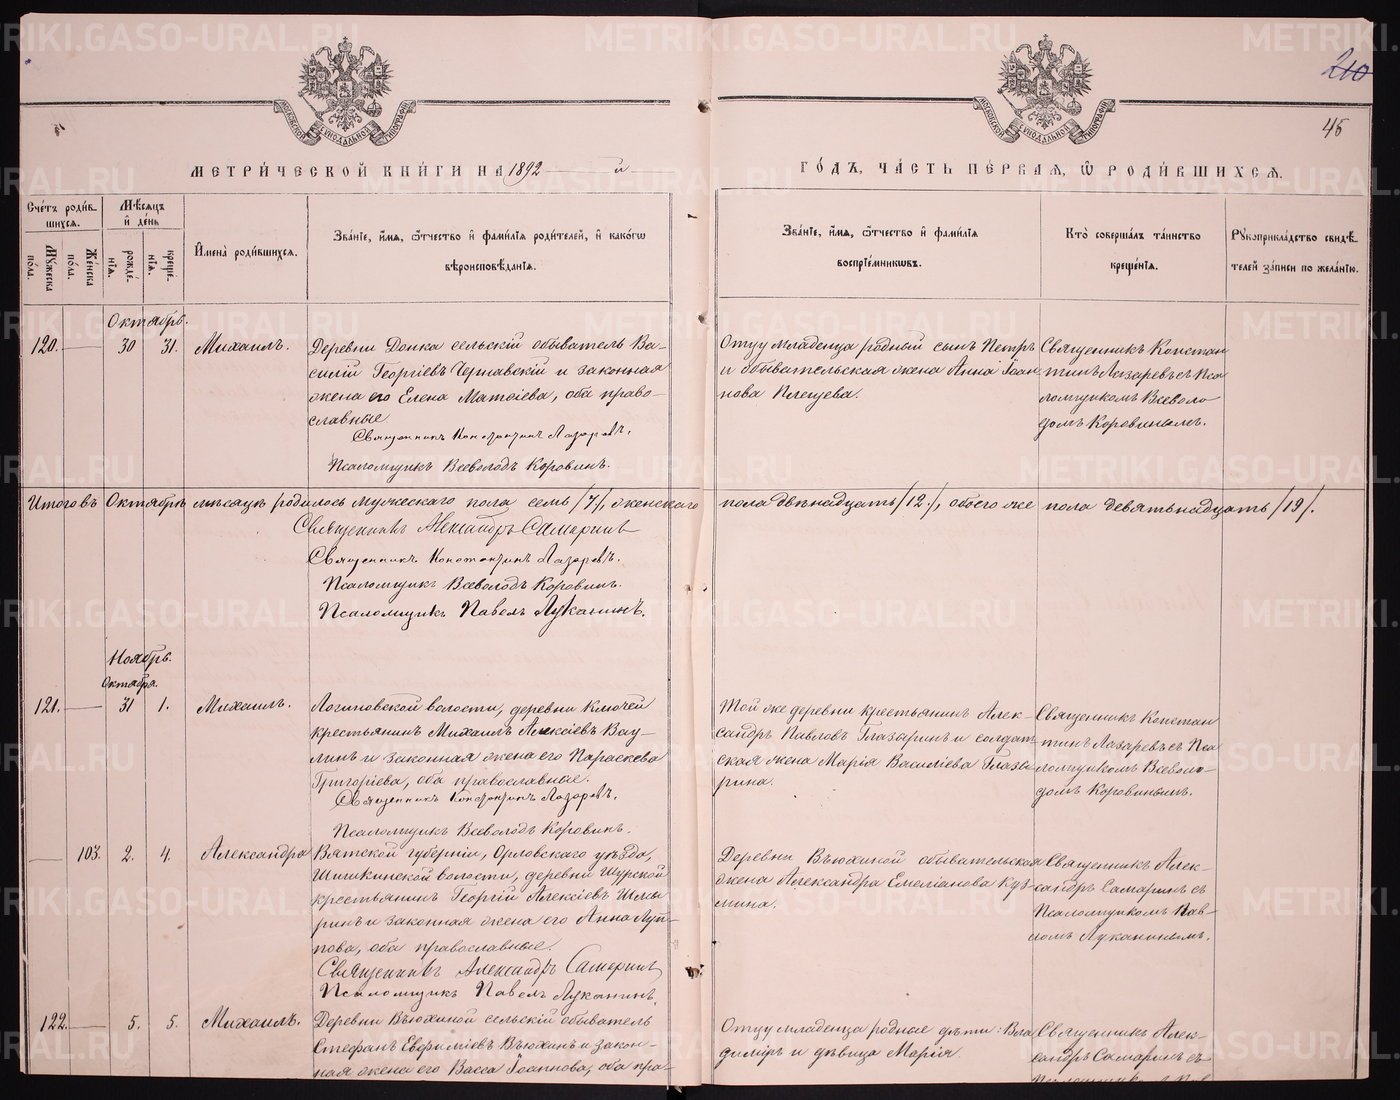 210
46
МЕТРИ́ЧЕСКОЙ КНИ́ГИ НА 1892 й
ГО́ДЪ, ЧА́СТЬ ПЕ́РВАЯ, Ѿ РОДИ́ВШИХСЯ.
Сче́тъ роди́в-
шихся.
Мѣ́сяцъ
и де́нь
Му́жеска по́ла.
Же́нска по́ла.
рожде́-
нія.
креще́-
нія.
Имена̀ роди́вшихся.
Зва́ніе, и́мя, ѻ́тчество и фами́лія роди́телей, и како́гѡ
вѣроисповѣ́данія.
Зва́ніе, и́мя, ѻ́тчество и фами́лія
воспріе́мникѡвъ.
Кто̀ соверша́лъ та́инство
креще́нія.
Рꙋкоприкла́дство свидѣ́-
телей за́писи по жела́нію.
Октябрь.
120.
30
31.
Михаилъ.
Деревни Донка сельскій обыватель Ва-
силій Георгіевъ Чернавскій и законная
жена его Елена Матѳіева, оба право-
славные
Священникъ Константинъ Лазаревъ.
Псаломщикъ Всеволодъ Коровинъ.
Отцу младенца родный сынъ Петръ
и обывательская жена Анна Іоан-
нова Плещева.
Священникъ Констан
тинъ Лазаревъ съ Пса
ломщикомъ Всеволо
домъ Коровинымъ.
Итого въ Октябрѣ мѣсяцѣ родилось мужескаго пола семь /7/, женскаго
пола двѣнадцать /12./, обоего же пола девятьнадцать /19/.
Священникъ Александръ Самаринъ
Священникъ Константинъ Лазаревъ.
Псаломщикъ Всеволодъ Коровинъ.
Псаломщикъ Павелъ Луканинъ.
Ноябрь.
Октября.
121.
31
1.
Михаилъ.
Логиновской волости, деревни Ключей
крестьянинъ Михаилъ Алексіевъ Вау-
линъ и законная жена его Параскева
Григоріева, оба православные.
Священникъ Константинъ Лазаревъ.
Псаломщикъ Всеволодъ Коровинъ.
Той же деревни крестьянинъ Алек-
сандръ Павловъ Глазаринъ и солдат-
ская жена Марія Василіева Глаза-
рина.
Священникъ Констан
тинъ Лазаревъ съ Пса
ломщикомъ Всеволо-
домъ Коровинымъ.
103.
2.
4.
Александра
Вятской губерніи, Орловскаго уѣзда,
Шишкинской волости, деревни Шурской
крестьянинъ Георгій Алексіевъ Шмы
ринъ и законная жена его Анна Луп-
пова, оба православные.
Священникъ Александръ Самаринъ
Псаломщикъ Павелъ Луканинъ.
Деревни Въюхиной обывательская
жена Александра Емеліанова Куз-
мина.
Священникъ Алек-
сандръ Самаринъ съ
Псаломщикомъ Пав-
ломъ Луканинымъ.
122.
5.
5.
Михаилъ.
Деревни Въюхиной сельскій обыватель
Стефанъ Евфиміевъ Въюхинъ и закон-
ная жена его Васса Іоаннова, оба пра-
Отцу младенца родные дѣти: Вла
димиръ и дѣвица Марія.
Священникъ Алек-
сандръ Самаринъ съ